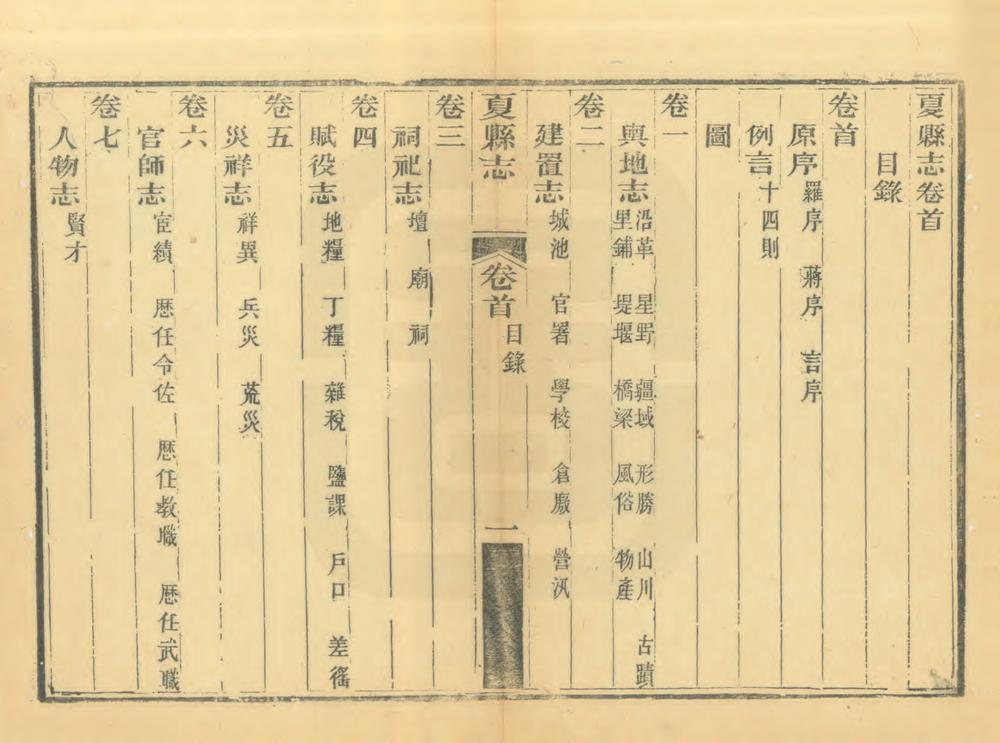 夏縣志卷首
目錄
卷首
原序 羅序 蔣序 言序
例言 十四則
圖
卷一
輿地志 沿革 星野 疆域 形勝 山川 古蹟
里鋪 堤堰 橋梁 風俗 物產
卷二
建置志 城池 官署 學校 倉廒 營汛
夏縣志 卷首 目錄 一
卷三
祠祀志 壇 廟 祠
卷四
賦役志 地糧 丁糧 雜稅 鹽課 戶口 差徭
卷五
災祥志 祥異 兵災 荒災
卷六
官師志 宦績 歷任令佐 歷任教職 歷任武職
卷七
人物志 賢才